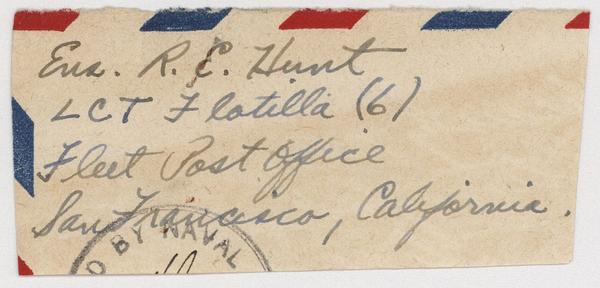 Ens. R. E. Hunt
LCT Flotilla (6)
Fleet Post Office
San Francisco, California.
D BY NAVAL